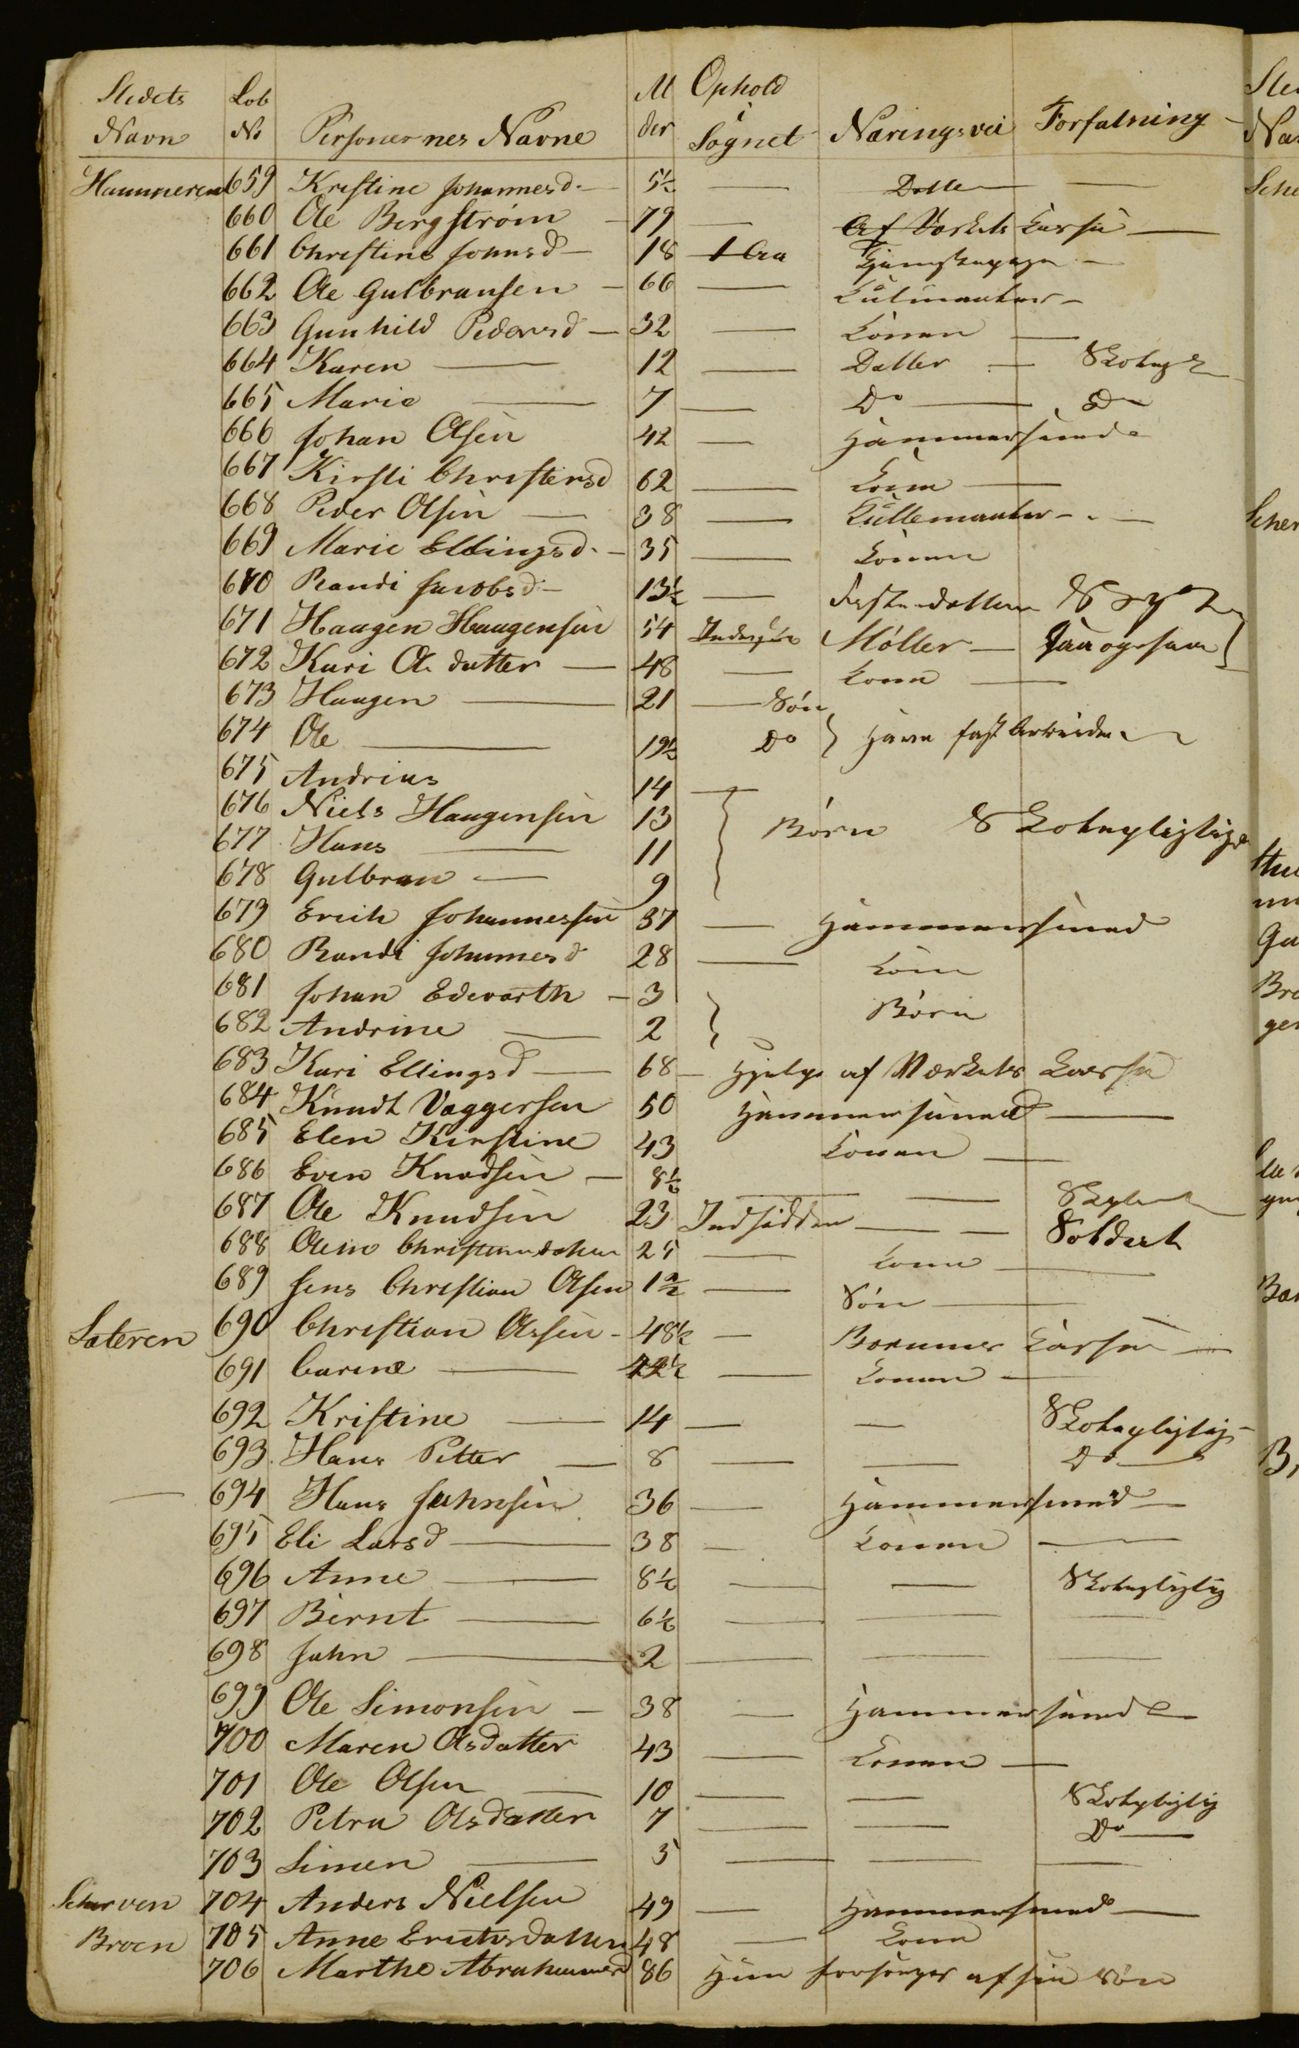 Stedets Lob M Ophold
Navn No Personernes Navne der Sognet Næringsvei Forfatning
Hammeren 659 Kristine Johannesd. 5½ — Datter —
660 Ole Bergstrøm — 79 — Af Værkets Kasse —
661 Christine Johnsd — 18 1 Aa
662 Ole Gulbransen — 66 — Kulmester —
663 Gunhild Pedersd — 32 — Konen —
664 Karen — 12 — Datter —
665 Marie — 7 — Do — Do
666 Johan Olsen 42 — Hammersmed
667 Kirsti Christensd 62 — Kone —
668 Peder Olsen — 38 —
669 Marie Ellingsd. — 35 — Konen
670 Randi Jacobsd — 13½ —
671 Haagen Haagensen 54 Møller —
672 Kari Ols datter — 48 — Kone —
673 Haagen — 21 — Søn
674 Ole — 19½ Do } Have fast Arbeide
675 Andrias 14 —
676 Niels Haugensen 13 } Børn Skolepligtige
677 Hans — 11
678 Gulbran — 9
679 Erich Johannessen 37 — Hammersmed
680 Randi Johannesd 28 — Kone
681 Johan Edevarth — 3 } Børn
682 Andrine — 2
683 Kari Ellingsd — 68 — Hjelp af Værkets Kasse
684 Knudt Vaggersen 50 Hammersmed —
685 Elen Kirstine 43 Konen —
686 Even Knudsen — 8½ — —
687 Ole Knudsen 23 Indsidder — — Soldat
688 Oline 25 — Kone —
689 Jens Christian Olsen 1½ — Søn —
Lateren 690 Christian Olssen — 48½ — Kasse —
691 Carine — 42½ — Konen —
692 Kristine — 14 — — Skolepligtig
693 Hans Petter — 8 — — Do —
— 694 Hans Jahnsen 36 — Hammersmed —
695 Eli Larsd — 38 — Konen —
696 Anne — 8½ — — Skolepligtig
697 Bernt — 6½ — — —
698 Jahn — 2 — — —
699 Ole Simonsen — 38 — Hammersmed —
700 Maren Olsdatter 43 — Konen —
701 Ole Olsen — 10 — — Skolepligtig
702 Petra Olsdatter 7 — — Do —
703 Simen — 5 — — —
704 Anders Nielsen 49 — Hammersmed —
Broen 705 Anne Erichsdatter 48 — Kone
706 Marthe Abrahamsd 86 Hun forsørges af sin Søn